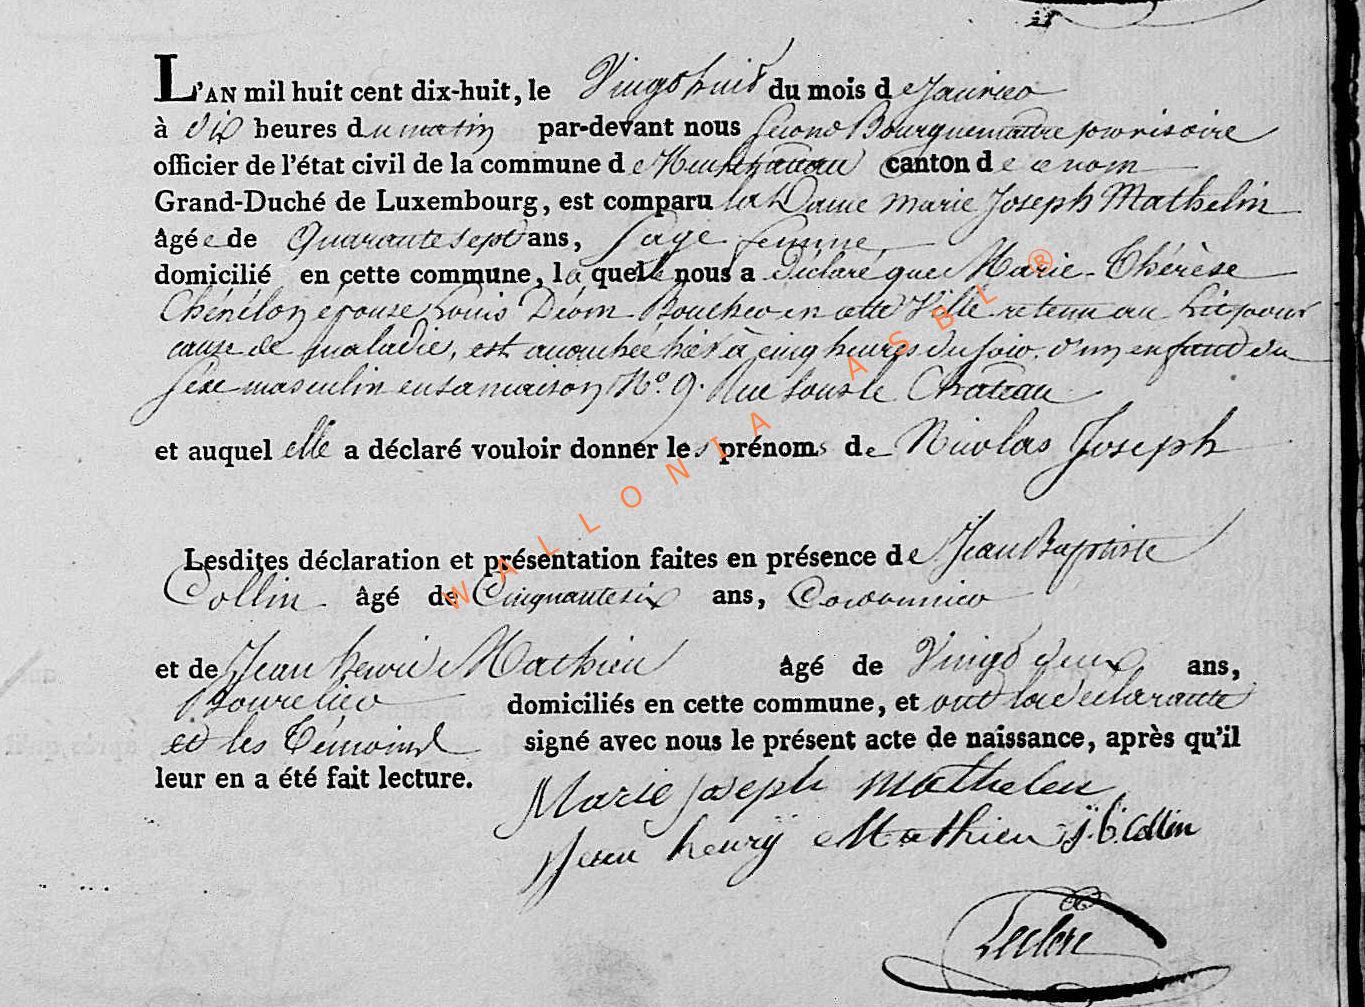 L'AN mil huit cent dix-huit, le Vingt huit du mois de Janvier
à dix heures du matin par-devant nous Second Bourguemaitre provisoire
officier de l'état civil de la commune de Neufchateau canton de ce nom
Grand-Duché de Luxembourg, est comparu la Dame Marie Joseph Mathelin
âgée de Quarante sept ans, Sage femme
domicilié en cette commune, la quelle nous a déclaré que Marie-Thérèse
épouse Louis Boucher en cette Ville retenu au lit pour
cause de maladie, est accouchée hier à cinq heures du soir, d'un enfant du
Sexe masculin en sa maison N.º 9. Rue sous le Chateau
et auquel elle a déclaré vouloir donner les prénoms de Nicolas Joseph
Lesdites déclaration et présentation faites en présence de Jean Baptiste
Collin âgé de Cinquante six ans, Cordonnier
et de Jean henri Mathieu âgé de Vingt deux ans,
Bourelier domiciliés en cette commune, et ont la déclarante
et les Témoins signé avec nous le présent acte de naissance, après qu'il
leur en a été fait lecture.
Marie Joseph Mathelin
Jean henrÿ Mathieu j. b. Collin
Leclere
WALLONIA ASBL ®